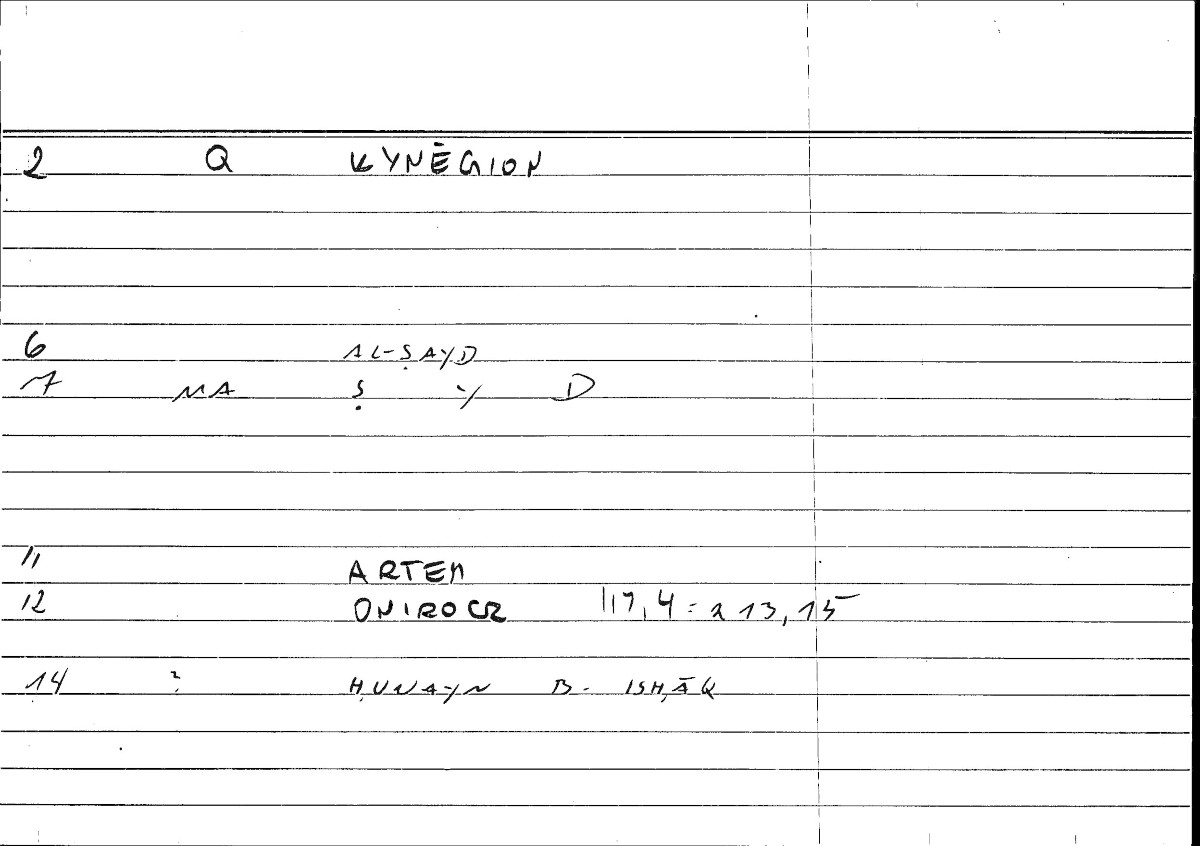 2 Q KYNĒGION
6 AL-ṢAYD
7 MA Ṣ Y D
11 ARTEM
12 ONIROCR 117,4 = 213,15
14 ? ḤUNAYN B. ISḤĀQ